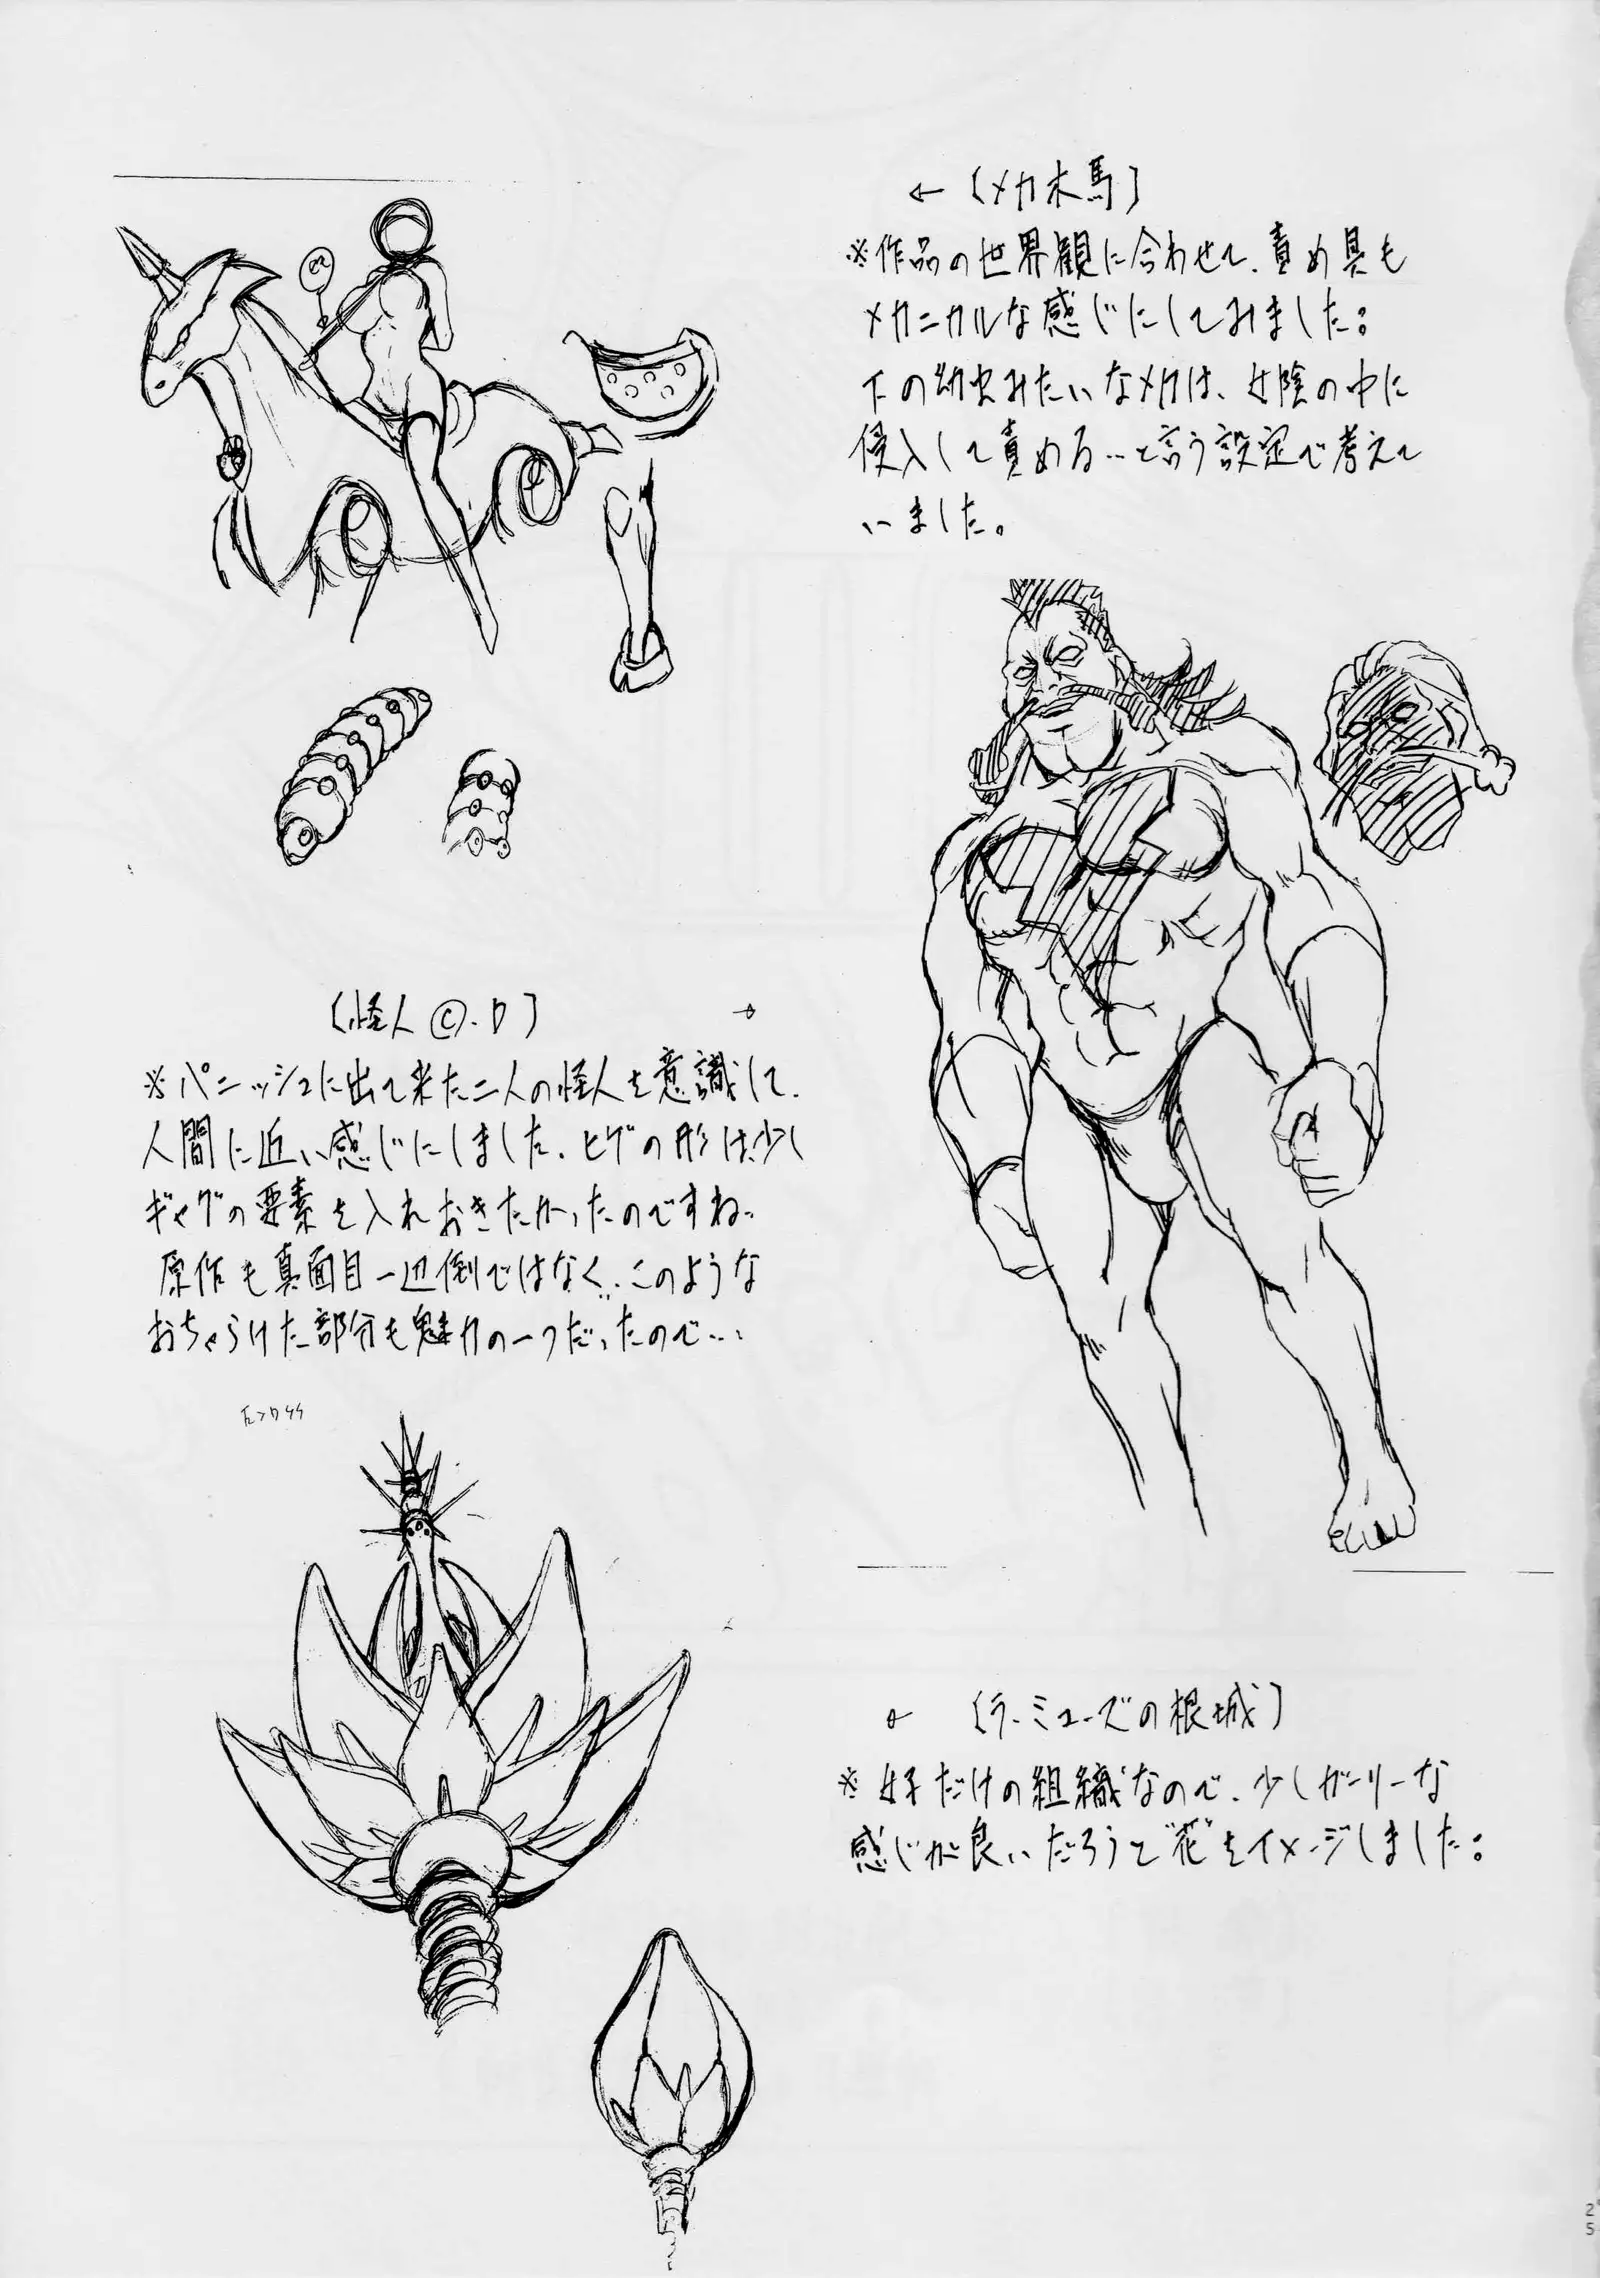 ← 〔メカ木馬〕
※作品の世界観に合わせて、責め具も
メカニカルな感じにしてみました。
下の幼虫みたいなメカは、女陰の中に
侵入して責める…と言う設定で考えて
いました。
〔怪人©.D〕 →
※パニッシュに出て来た二人の怪人を意識して、
人間に近い感じにしました、ヒゲの形は少し
ギャグの要素を入れおきたかったのですね、
原作も真面目一辺倒ではなく、このような
おちゃらけた部分も魅力の一つだったので…
← 〔ラ・ミューズの根城〕
※女子だけの組織なので、少しガーリーな
感じが良いだろうと“花”をイメージしました。
2
5